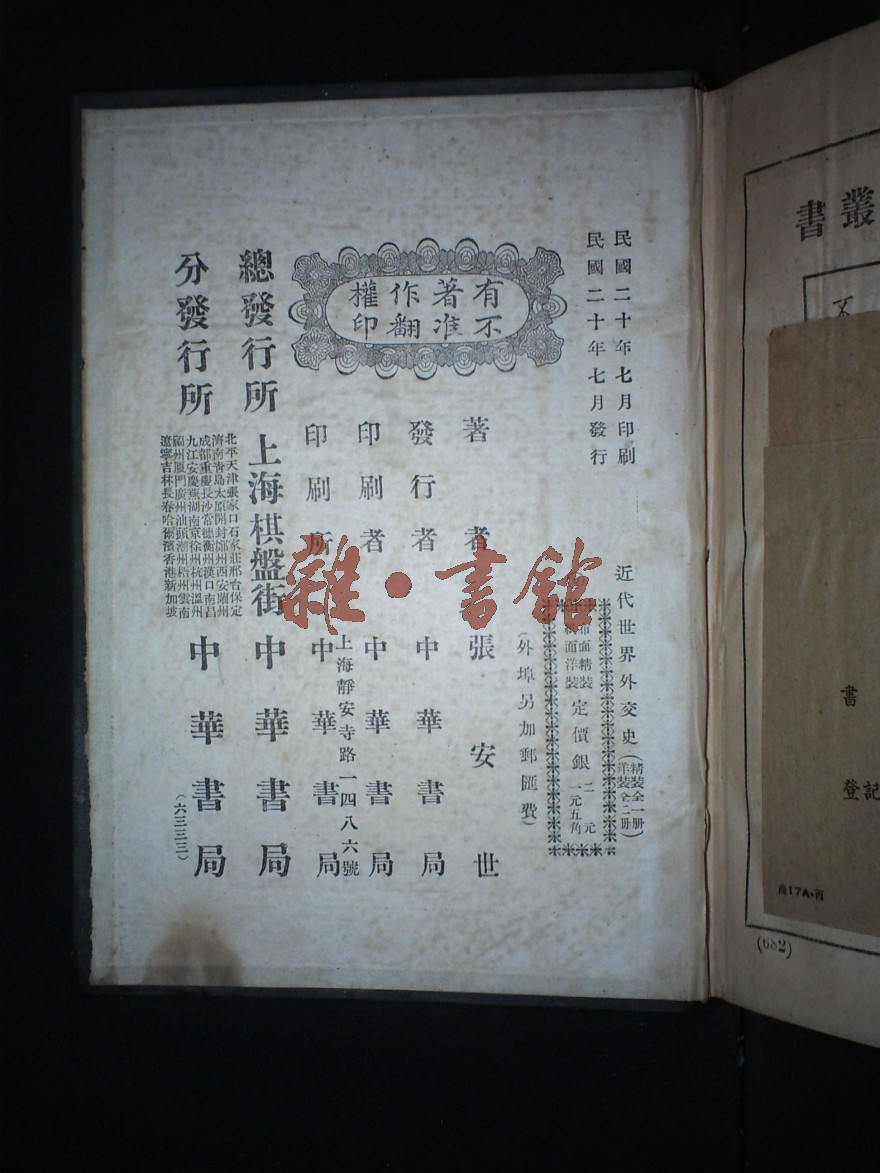 民國二十年七月印刷
民國二十年七月發行
近代世界外交史(精裝全一册 洋裝全二册)
布面精裝 紙面洋裝 定價銀 二元 一元五角
(外埠另加郵匯費)
有著作權
不准翻印
著者 張安世
發行者 中華書局
印刷者 中華書局
上海靜安寺路一四八六號
印刷所 中華書局
總發行所 上海棋盤街 中華書局
分發行所
北平天津張家口石家莊邢台保定
濟南青島太原開封鄭州西安蘭州
成都重慶長沙常德衡州漢口南昌
九江安慶蕪湖南京徐州杭州溫州
福州厦門廣州汕頭潮州梧州雲南
遼寧吉林長春哈爾濱香港新加坡
中華書局
(六三三三)
雜·書館
叢書
書
登記
南17A·丙
(682)